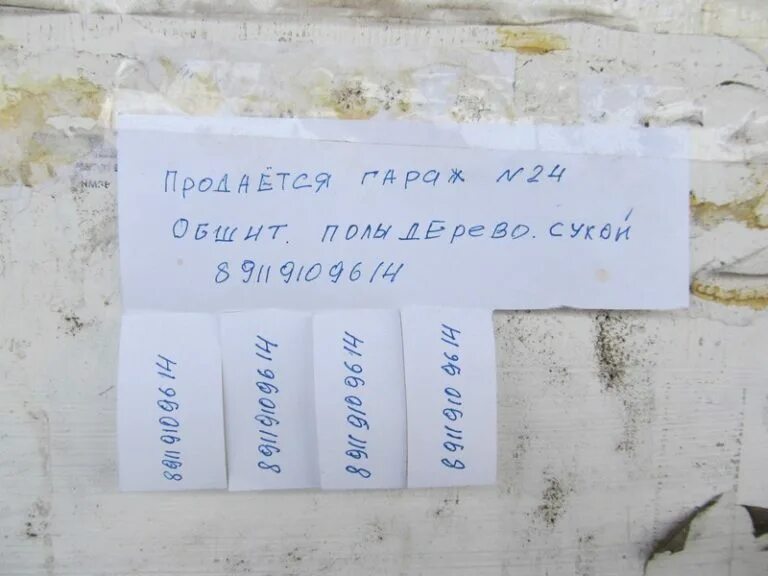 ПРОДАЁТСЯ ГАРАЖ N24
ОБШИТ. ПОЛЫ ДЕРЕВО. СУХОЙ
89119109614
89119109614
89119109614
89119109614
89119109614